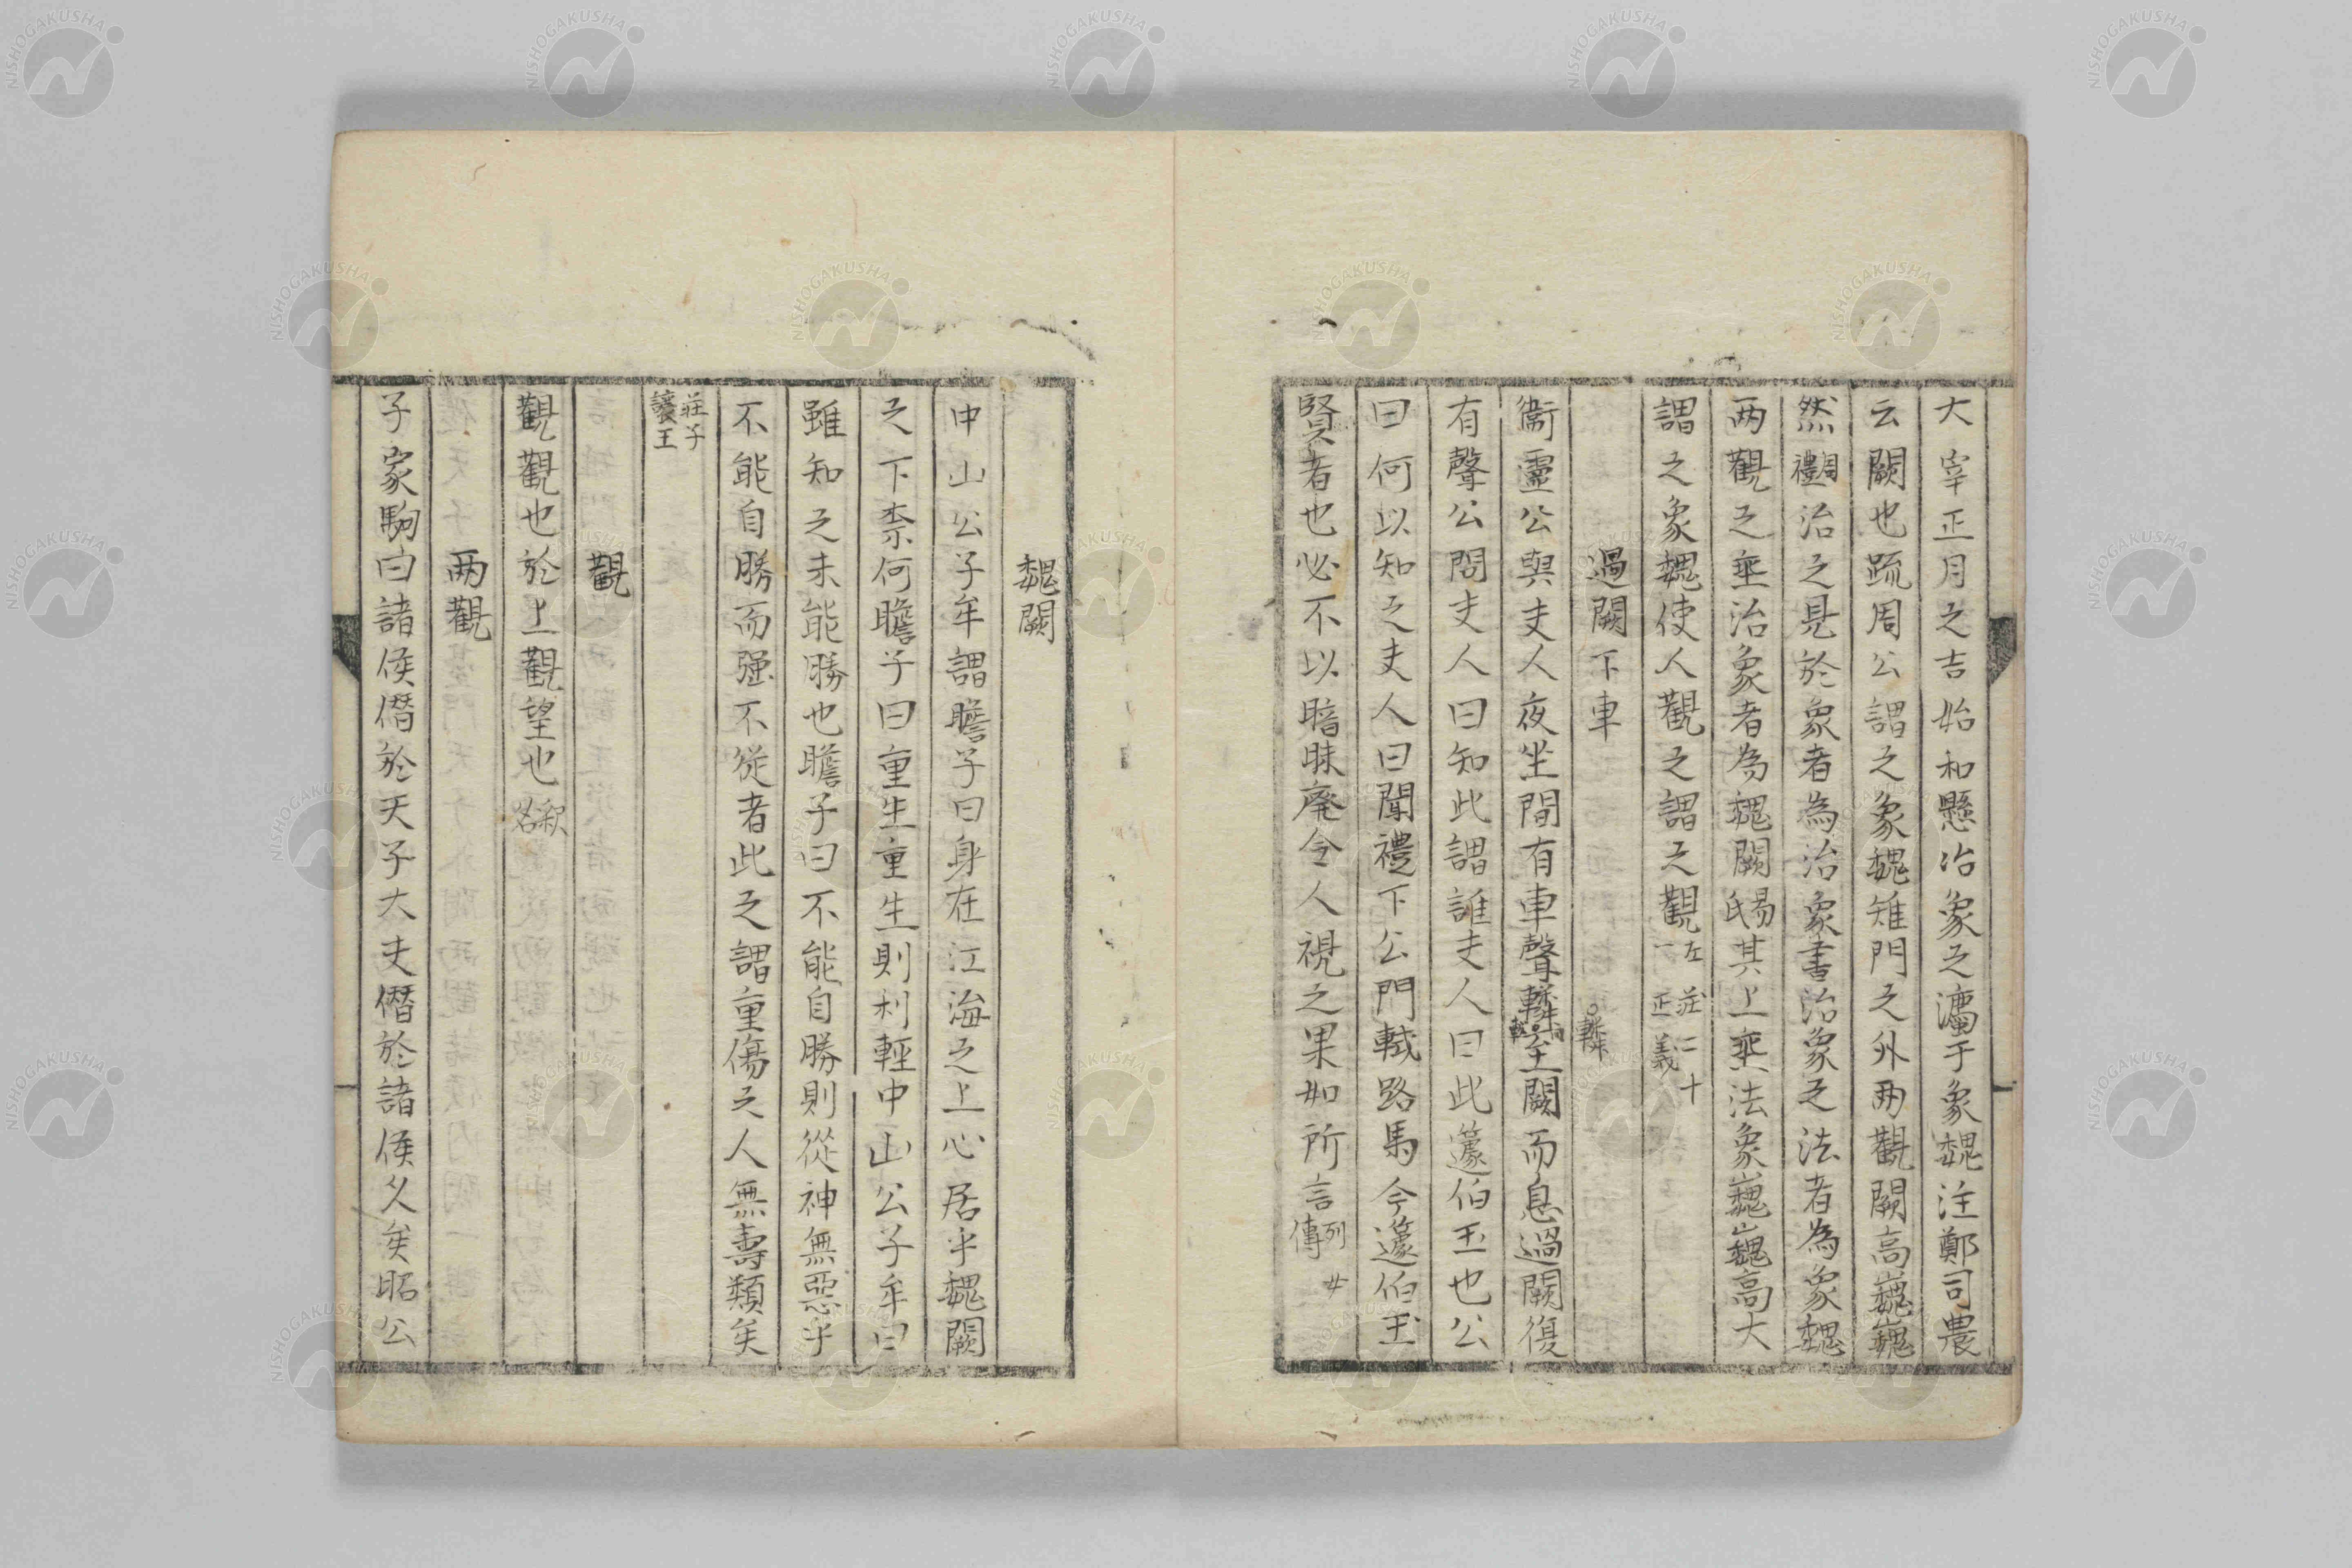 大宰正月之吉始和懸治象之灋于象魏注鄭司農
云闕也䟽周公謂之象魏雉門之外兩觀闕高巍巍
然周禮治之見於象者為治象書治象之法者為象魏
兩觀之垂治象者為魏闕民易其上垂法象巍巍高大
謂之象魏使人觀之謂之觀左一 莊二十 正義
過闕下車
衞靈公與夫人夜坐聞有車聲轔至闕而息過闕復
。轔
有聲公問夫人曰知此謂誰夫人曰此蘧伯玉也公
曰何以知之夫人曰聞禮下公門軾路馬今蘧伯玉
賢者也必不以暗昧廢令人視之果如所言列傳
魏闕
中山公子牟謂瞻子曰身在江海之上心居乎魏闕
之下柰何瞻子曰重生重生則利輕中山公子牟曰
雖知之未能勝也瞻子曰不能自勝則從神無惡乎
不能自勝而强不從者此之謂重傷之人無壽類矣
莊子讓王
觀
觀觀也於上觀望也釈名
兩觀
子家駒曰諸侯僭於天子大夫僭於諸侯久矣昭公
NISHOGAKUSHA